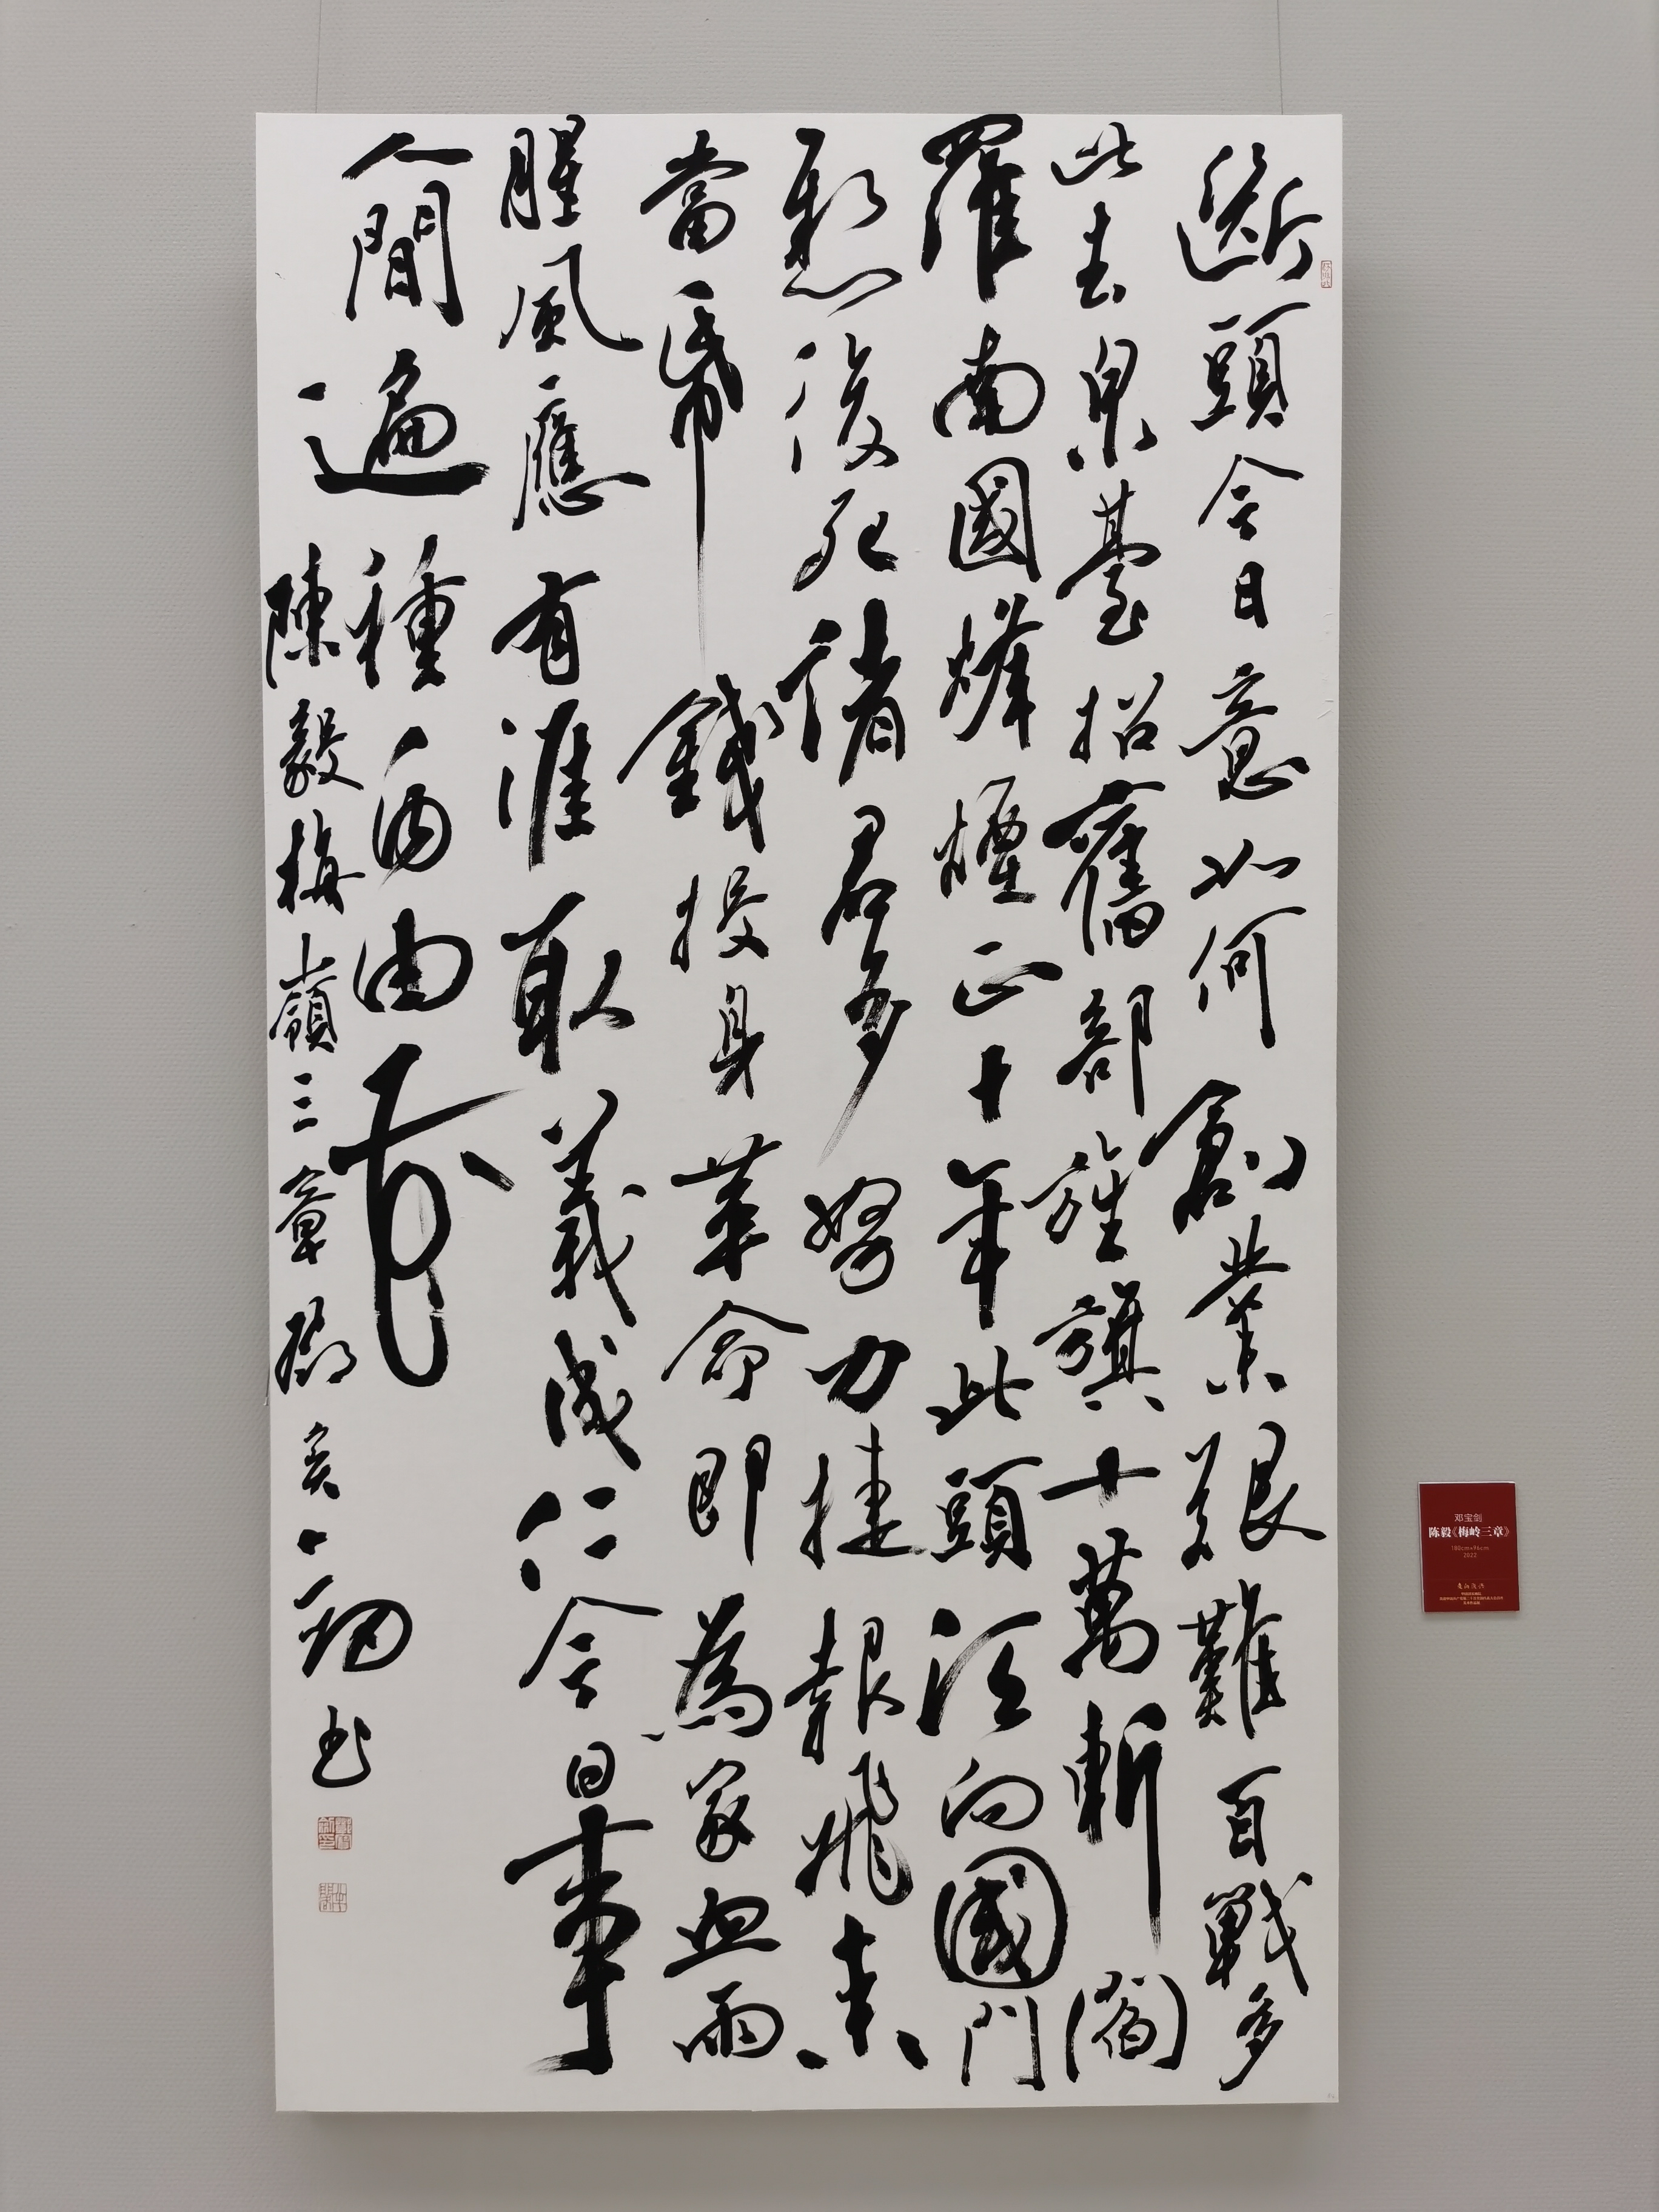 斷頭今日意如何創業艱難百戰多
此去泉臺招舊部旌旗十萬斬閻
羅南國烽煙正十年此頭須向國門
懸後死諸君多努力捷報飛來
當帋錢投身革命即為家血雨
腥風應有涯取義成仁今日事
人間遍種自由花
陳毅梅嶺三章鄧寶劍書
邓宝剑
陈毅《梅岭三章》
180cm×96cm
2022